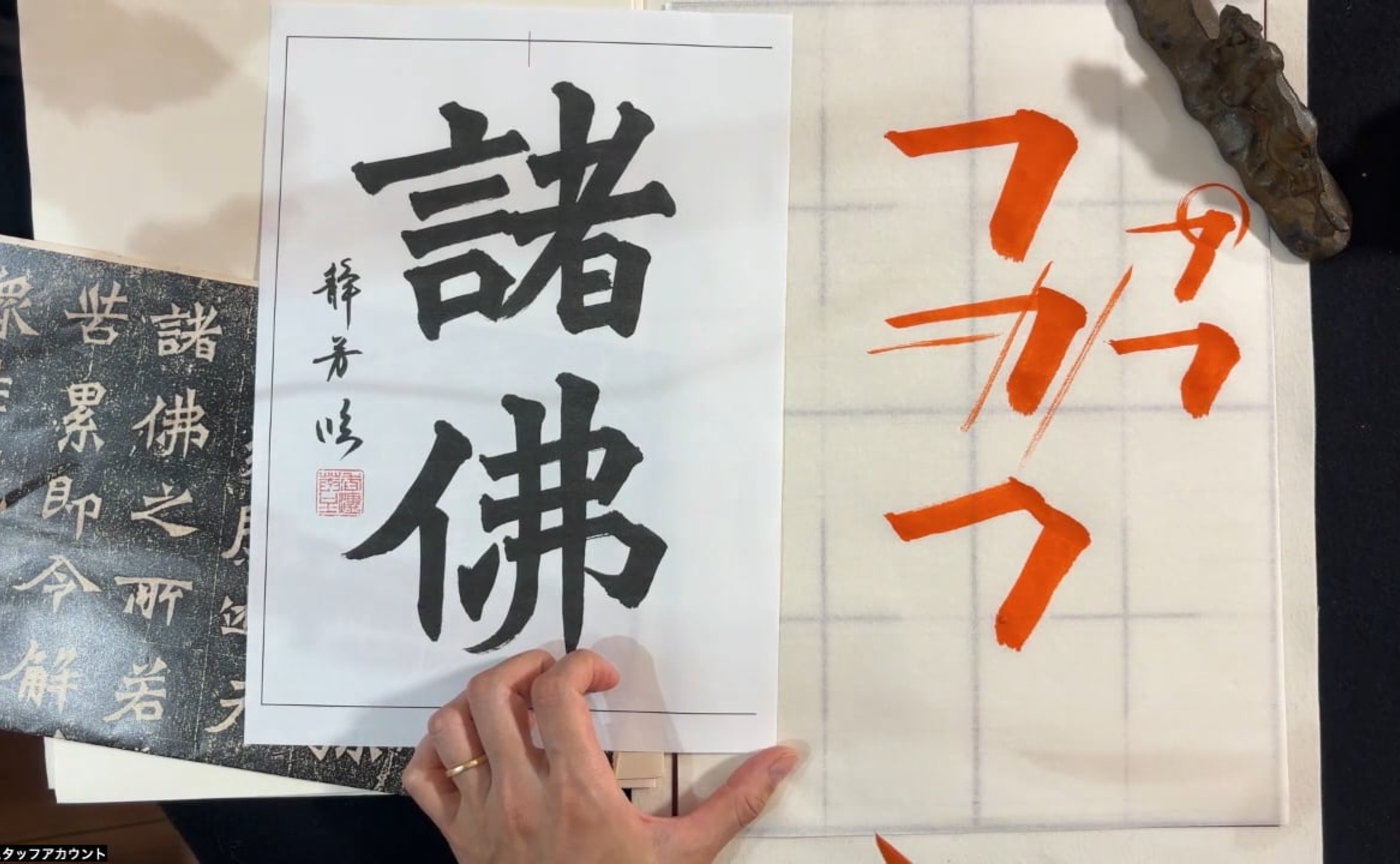 諸佛
静芳臨
諸佛之所若
苦累即令解
タッフアカウント